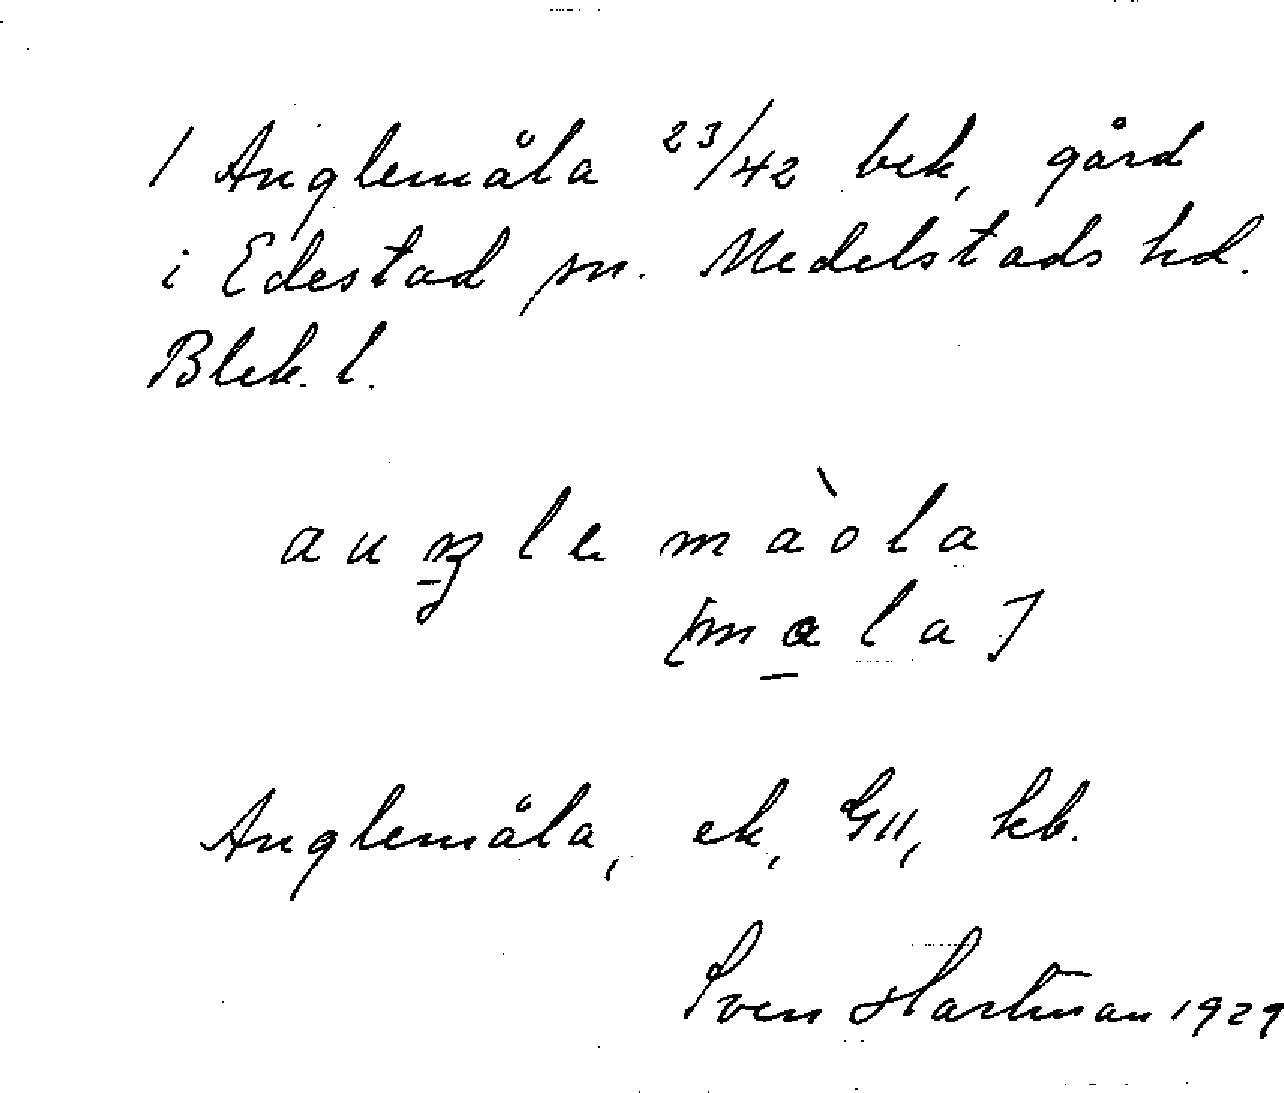 1 Anglemåla 23/42 bek, gård
i Edestad sn. Medelstads hd.
Blek. l.
auŋle màola
[mala]
Anglemåla, ek, GII, kb.
Sven Hartman 1929